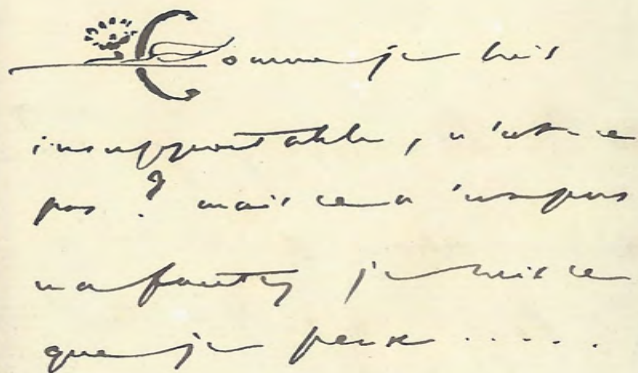 Comme je suis
insupportable, n'est-ce
pas ? mais ce n'est pas
ma faute, je suis ce
que je peux .....